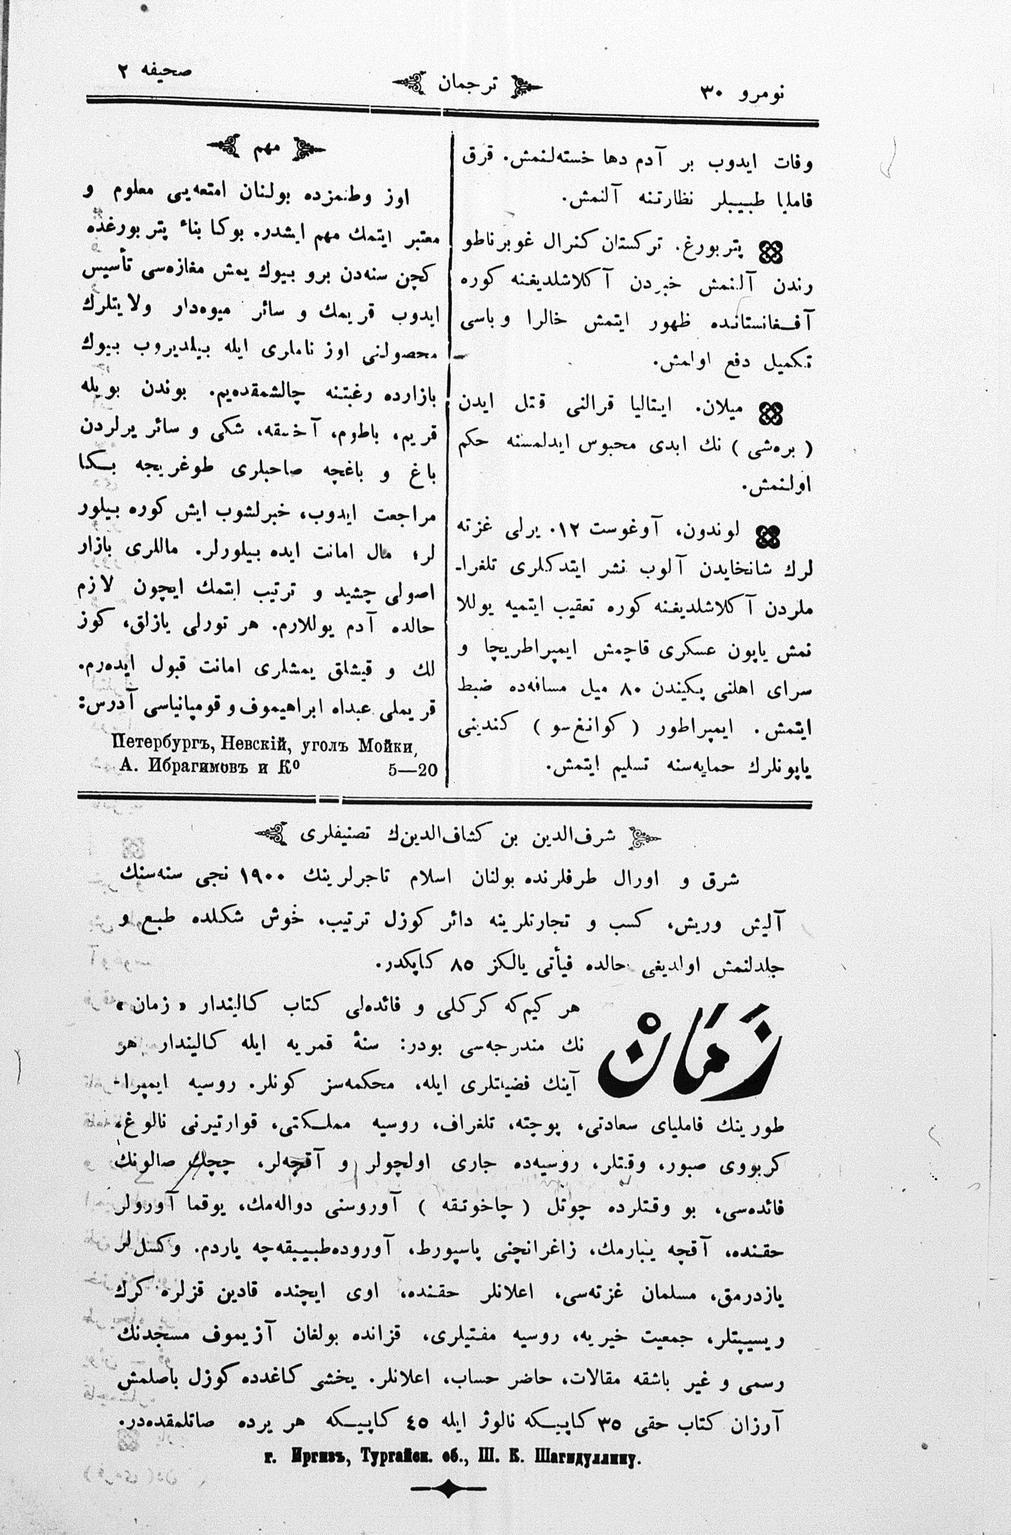 نومرو ٣٠
ترجمان
صحیفه ٢
وفات ایدوب بر آدم دها خسته‌لنمش. قرق
فاملیا طبیبلر نظارتنه آلنمش.
پتربورغ. ترکستان کنرال غوبرناطو
رندن آلنمش خبردن آکلاشلدیغنه کوره
آفغانستانده ظهور ایتمش خالرا وباسی
تکمیل دفع اولمش.
میلان. ایتالیا قرالنی قتل ایدن
( بره‌شی ) نك ابدی محبوس ایدلمسنه حکم
اولنمش.
لوندون، آوغوست ١٢. یرلی غزته
لرك شانخایدن آلوب نشر ایتدکلری تلغرا۔
ملردن آکلاشلدیغنه کوره تعقیب ایتمیه یوللا
نمش یاپون عسکری قاچمش ایمپراطریچا و
سرای اهلنی پکیندن ٨٠ میل مسافه‌ده ضبط
ایتمش. ایمپراطور ( کوانغ‌سو ) کندینی
یاپونلرك حمایه‌سنه تسلیم ایتمش.
مهم
اوز وطنمزده بولنان امتعه‌یی معلوم و
معتبر ایتمك مهم ایشدر. بوکا بناءً پتربورغده
کچن سنه‌دن برو بیوك یمش مغازه‌سی تأسیس
ایدوب قریمك و سائر میوه‌دار ولایتلرك
محصولنی اوز ناملری ایله بیلدیروب بیوك
بازارده رغبتنه چالشمقده‌یم. بوندن بویله
قریم، باطوم، آخسقه، شکی و سائر یرلردن
باغ و باغچه صاحبلری طوغریجه بکا
مراجعت ایدوب، خبرلشوب ایش کوره بیلور
لر؛ مال امانت ایده بیلورلر. ماللری بازار
اصولی چشید و ترتیب ایتمك ایچون لازم
حالده آدم یوللارم. هر تورلی یازلق، کوز
لك و قیشلق یمشلری امانت قبول ایده‌رم.
قریملی عبداه ابراهیموف و قومپانیاسی آدرس:
Петербургъ, Невскій, уголъ Мойки,
А. Ибрагимовъ и К⁰ 5—20
شرف‌الدین بن کشاف‌الدین‌ك تصنیفلری
شرق و اورال طرفلرنده بولنان اسلام تاجرلرینك ١٩٠٠ نجی سنه‌سنك
آلیش وریش، کسب و تجارتلرینه دائر کوزل ترتیب، خوش شکلده طبع و
جلدلنمش اولدیغی حالده فیأتی یالکز ٨٥ کاپکدر.
زمان
هر کیم‌که کرکلی و فائده‌لی کتاب کالیندار « زمان »
نك مندرجه‌سی بودر: سنهٔ قمریه ایله کالیندار هر
آینك فضیلتلری ایله، محکمه‌سز کونلر. روسیه ایمپرا۔
طورینك فاملیای سعادتی، پوچته، تلغراف، روسیه مملکتی، قوارتیرنی نالوغ،
کربووی صبور، وقتلر، روسیه‌ده جاری اولچولر و آقچه‌لر، چچك صالونك
فائده‌سی، بو وقتلرده چوتل ( چاخوتقه ) آوروسنی دواله‌مك، یوقما آورولر
حقنده، آقچه یبارمك، زاغرانچنی پاسپورط، آوروده‌طبیبقه‌چه یاردم. وکسل‌لر
یازدرمق، مسلمان غزته‌سی، اعلانلر حقنده، اوی ایچنده قادین قزلره کرك
ریسیپتلر، جمعیت خیریه، روسیه مفتیلری، قزانده بولغان آزیموف مسجدنك
رسمی و غیر باشقه مقالات، حاضر حساب، اعلانلر. یخشی کاغدده کوزل باصلمش
آرزان کتاب حقی ٣٥ کاپیکه نالوژ ایله ٤٥ کاپیکه هر یرده صاتلمقده‌در.
г. Иргизъ, Тургайск. об., Ш. К. Шагидуллину.